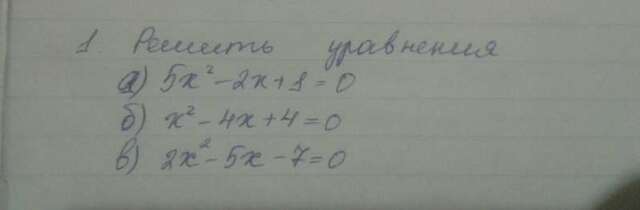 1. Решить уравнения
а) 5x² - 2x + 1 = 0
б) x² - 4x + 4 = 0
в) 2x² - 5x - 7 = 0